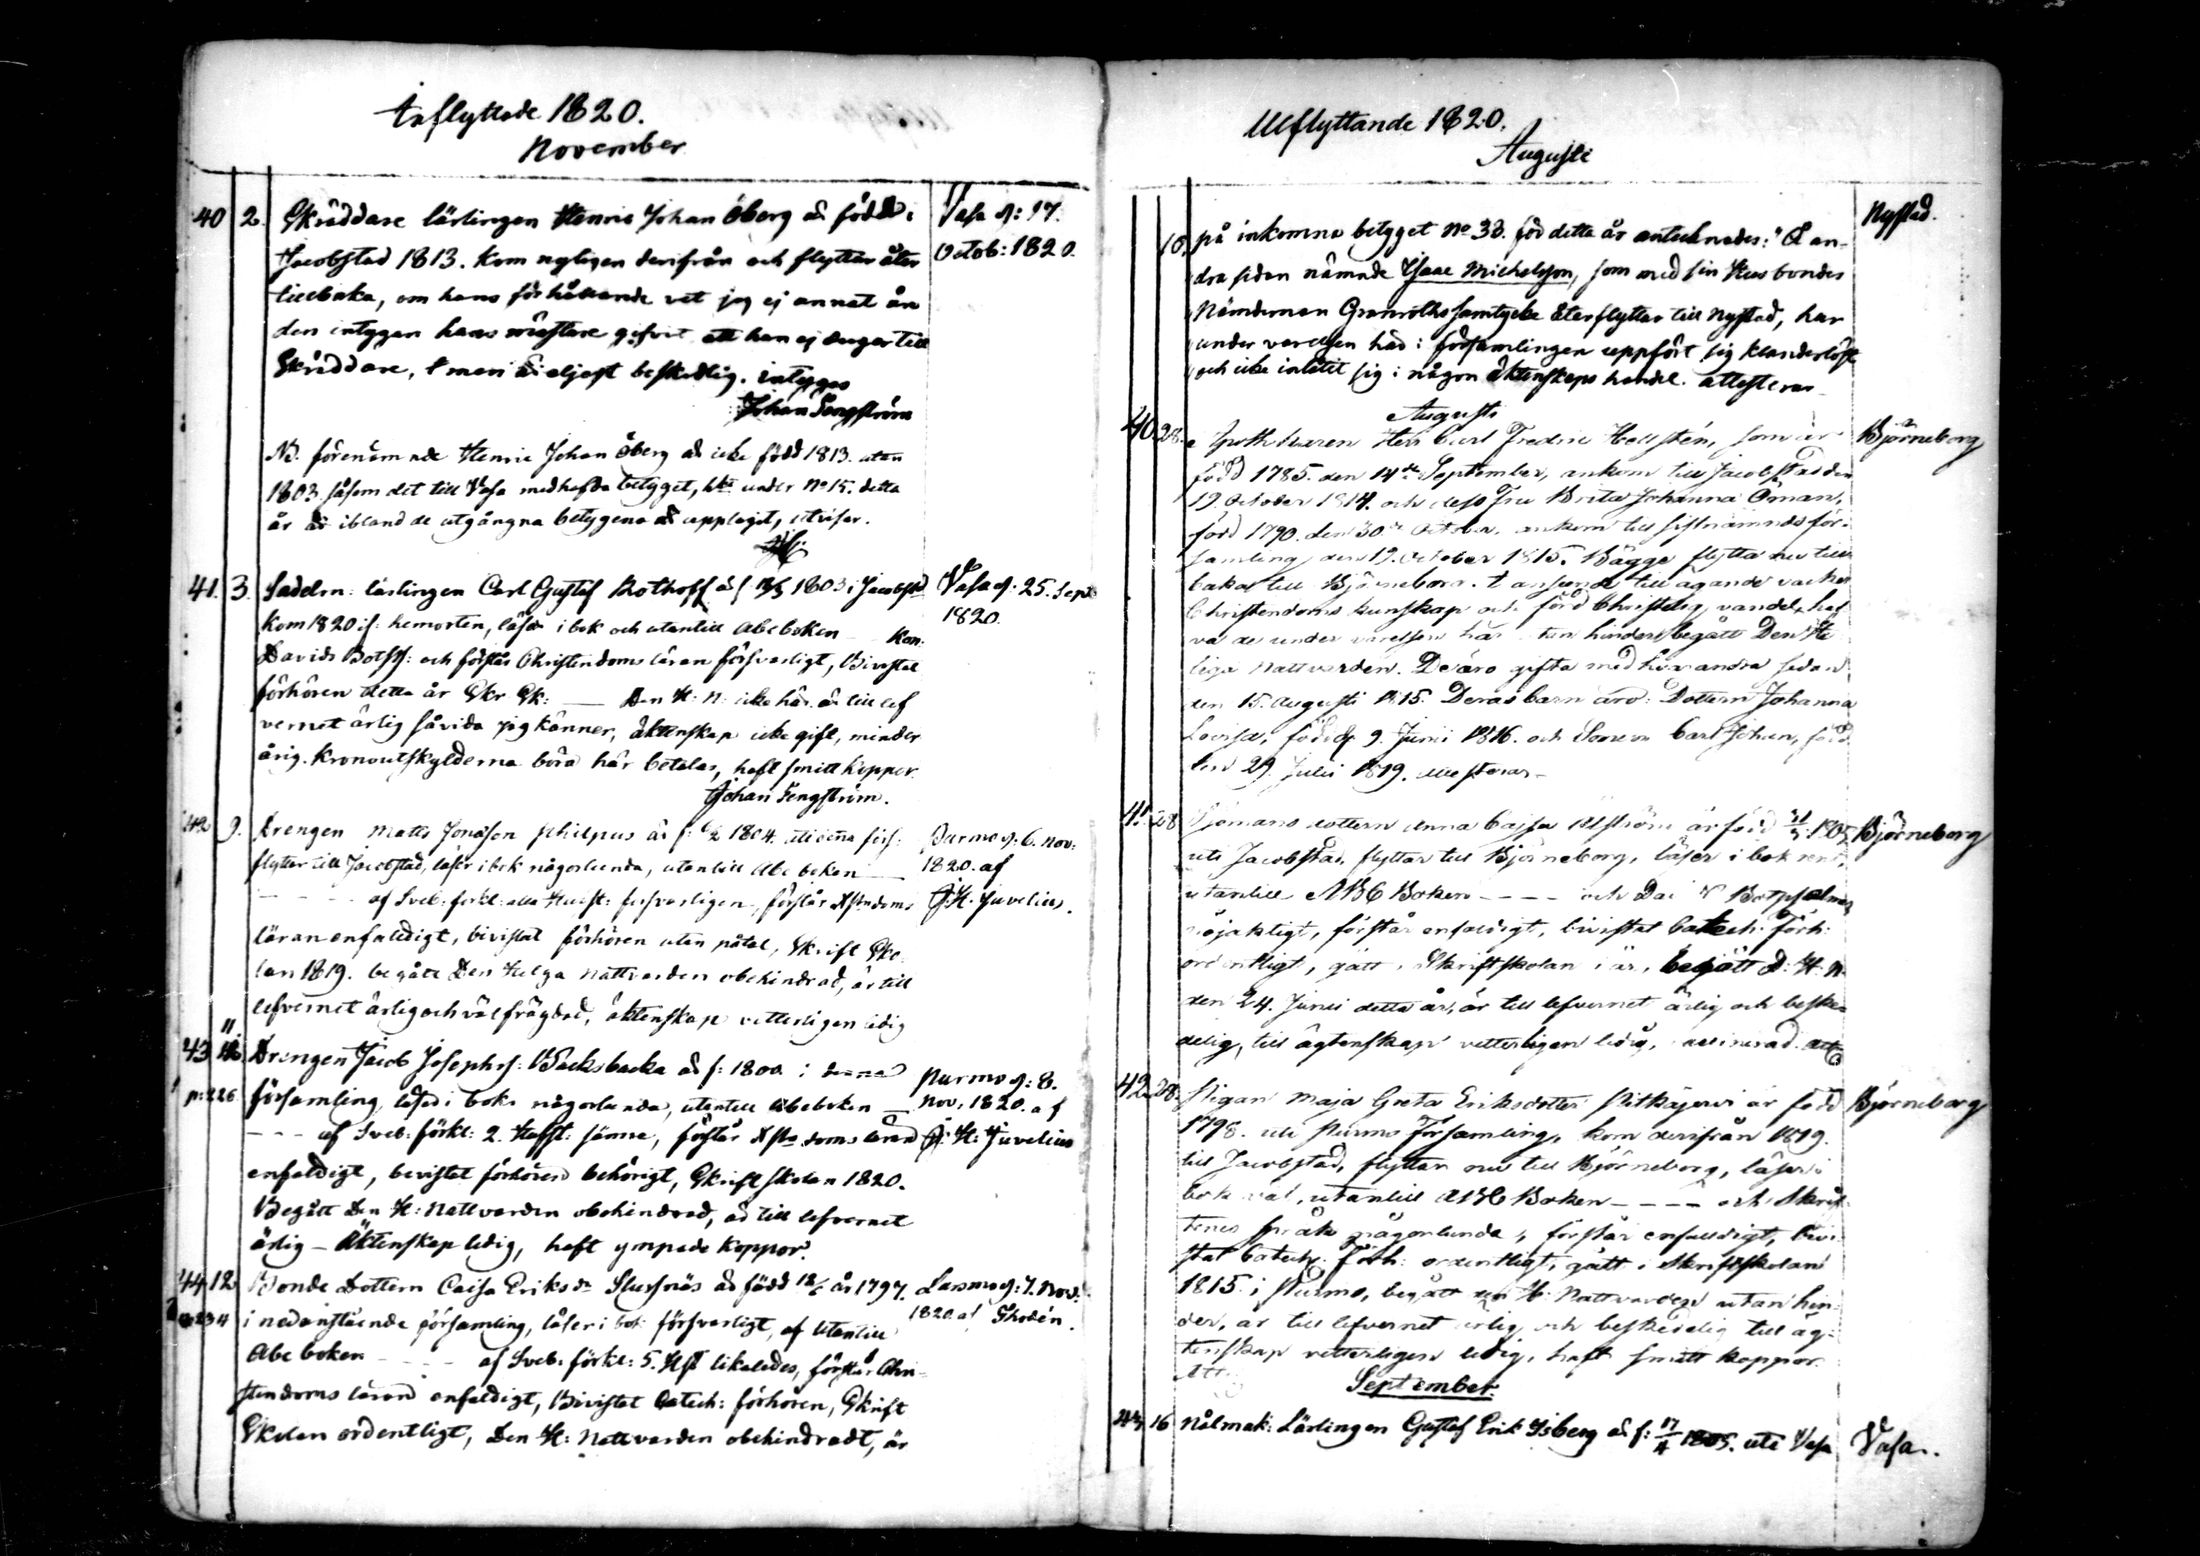 Inflyttade 1820.
November
40 2. Skräddare lärlingen Henric Johan Öberg är född i Vasa d: 17.
Jacobstad 1813. kom nyligen derifrån och flyttar åter Octob: 1820.
tillbaka, om hans förhållande vet jag ej annat än
den intygan hans mästare gifvit att han ej duger till
Skräddare, men är eljest beskedlig. intygas
Johan Tengström
NB. förenämnde Henric Johan Öberg är icke född 1813. utan
1803 såsom det till Vasa medhafda betyget, under No 15. detta
år är ibland de utgångna betygena upplagit, utvisar.
41. 3. Sadelm: lärlingen Carl Gustaf Rothoff är f 1803 i Jacobst Vasa d: 25. Sept
kom 1820 if: hemorten, läser i bok och utantill Abc boken 1820.
Davids Botps: och förstår Christendoms läran försvarligt, Bivistat
förhören detta år Skr Sk: — Den H: N: icke här. är till lef
vernet ärlig såvida jag känner, äktenskap icke gift, minder
årig. Kronoutskylderna böra här betalas, haft smitt koppor.
Johan Tengström.
42 9. Drengen Matts Jonasson Philpus är f: 1804. uti denna förs: Purmo d: 6. Nov:
flyttar till Jacobstad, läser i bok någorlunda, utantill Abc boken — 1820. af
- - - - af Sveb: förkl: alla Hufst: försvarligen, förstår Xstndoms J. H. Juvelius.
läran enfaldigt, bivistat förhören utan påtal, Skrift Sko-
lan 1819. begått Den Helga Nattvarden obehindrad, är till
lefvernet ärlig och välfrägdad, äktenskap vetterligen ledig
43 11. Drengen Jacob Josephss: Backsbacka är f: 1800. i denna Purmo d: 8.
p: 226 församling, läser i bok någorlunda, utantill Abc boken — Nov: 1820. af
- - - af Sveb: förkl: 2. Hufst: jämne, förstår Xstndoms läran J: H: Juvelius
enfaldigt, bevistat förhören behörigt, Skriftskolan 1820.
Begått Den H: Nattvarden obehindrad, är till lefvernet
ärlig – Äktenskap ledig, haft ympade koppor.
44 12 Bonde Dottern Caisa Eriksdr är född år 1797. Larsmo d: 7. Nov:
234 i nedanstående församling, läser i bok försvarligt, af Utantill 1820 af
Abc boken - - - af Sveb: förkl: 5. Hst likaledes, förstår Chri-
stendoms läran enfaldigt, Bivistat Catech: förhören, Skrift
Skolan ordentligt, Den H: Nattvarden obehindradt, är
Utflyttande 1820.
Augusti
10. på inkomna betyget No 33. för detta år antecknades: "Å an- Nystad.
dra sidan nämnde Isaac Michelsson, som med sin Husbondes
Nämdeman Granroths samtycke återflyttar till Nystad, har
under varelsen här i församlingen uppfört sig klanderlöst
och icke inlåtit sig i någon äktenskaps handel. attesteras
Augusti
40. 28. Herr Carl Fredric Hellstén, som är Björneborg
född 1785. den 14de September, ankom till Jacobstad den
19. October 1814. och dess Fru Brita Johanna Öman,
född 1790. den 30de October, ankom till sistnämnde för-
samling den 19. October 1815. Bägge flytta nu till-
baka till Björneborg. I anseende till ägande vacker
Christendoms kunskap och förd Christelig vandel, haf
va de under varelsen här utan hinder begått Den He
liga Nattvarden. De äro gifta med hvarandra sedan
den 15. Augusti 1815. Deras barn äro: Dottern Johanna
Lovisa, född d. 9. Junii 1816. och Sonen Carl Johan, född
den 29. Julii 1819. attesteras –
41. 28 Sjömans dottern Anna Cajsa är född 1805 Björneborg
uti Jacobstad, flyttar till Björneborg, läser i bok rent,
utantill ABC Boken - - - - och Davids Botpsalmer
nöjaktigt, förstår enfaldigt, bivistat Catech: Förh:
ordentligt, gått i Skriftskolan i år, begått D: H: N:
den 24. Junii detta år, är till lefvernet ärlig och beske-
delig, till ägtenskap vetterligen ledig, vaccinerad.
42. 28. Pigan Maja Greta Eriksdotter är född Björneborg
1798. uti Purmo Församling, kom derifrån 1819.
till Jacobstad, flyttar nu till Björneborg, läser i
bok väl, utantill ABC Boken - - - - och Skrif-
tenes språk någorlunda, förstår enfaldigt, bivi-
stat Catech: Förh: ordentligt, gått i Skriftskolan
1815. i Purmo, begått den H: Nattvarden utan hin-
der, är till lefvernet ärlig och beskedelig till äg-
tenskap vetterligen ledig, haft smitt koppor.
Att.
September.
43 16 Nålmak: Lärlingen Gustaf Erik Isberg är f: 17/4 1805. uti Vasa Vasa.